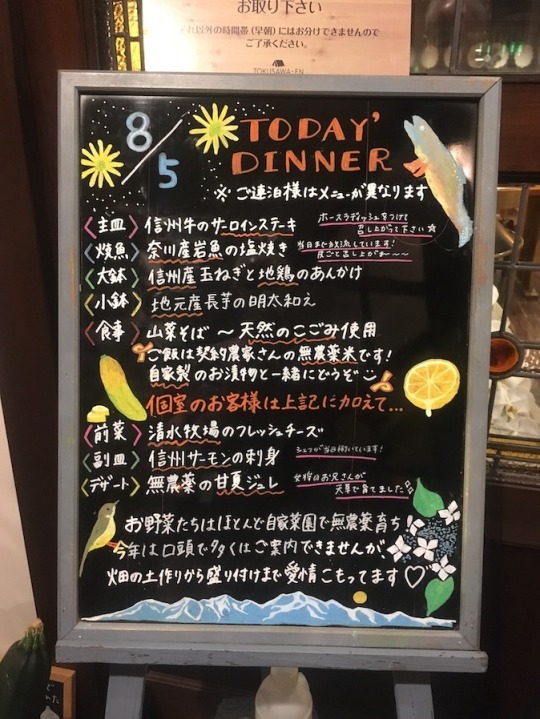 お取り下さい
それ以外の時間帯(早朝)にはお分けできませんので
ご了承ください。
TOKUSAWA-EN
8/5
TODAY'
DINNER
※ご連泊様はメニューが異なります
〈主皿〉信州牛のサーロインステキ
ホースラディッシュをつけて
召し上がって下さい☆
〈焼魚〉奈川産岩魚の塩焼き
当日まで放流しています!
皮ごと召し上がれ〜〜
〈大鉢〉信州産玉ねぎと地鶏のあんかけ
〈小鉢〉地元産長芋の明太和え
〈食事〉山菜そば〜天然のこごみ使用
ご飯は契約農家さんの無農薬米です!
自家製のお漬物と一緒にどうぞ
個室のお客様は上記に加えて...
〈前菜〉清水牧場のフレッシュチーズ
〈副皿〉信州サーモンの刺身
シェフが当日捌いています!
〈デザート〉無農薬の甘夏ジュレ
女将のお兄さんが
天草で育てました
お野菜たちはほとんど自家菜園で無農薬育ち!
今年は口頭で多くはご案内できませんが、
畑の土作りから盛り付けまで愛情こもってます♡